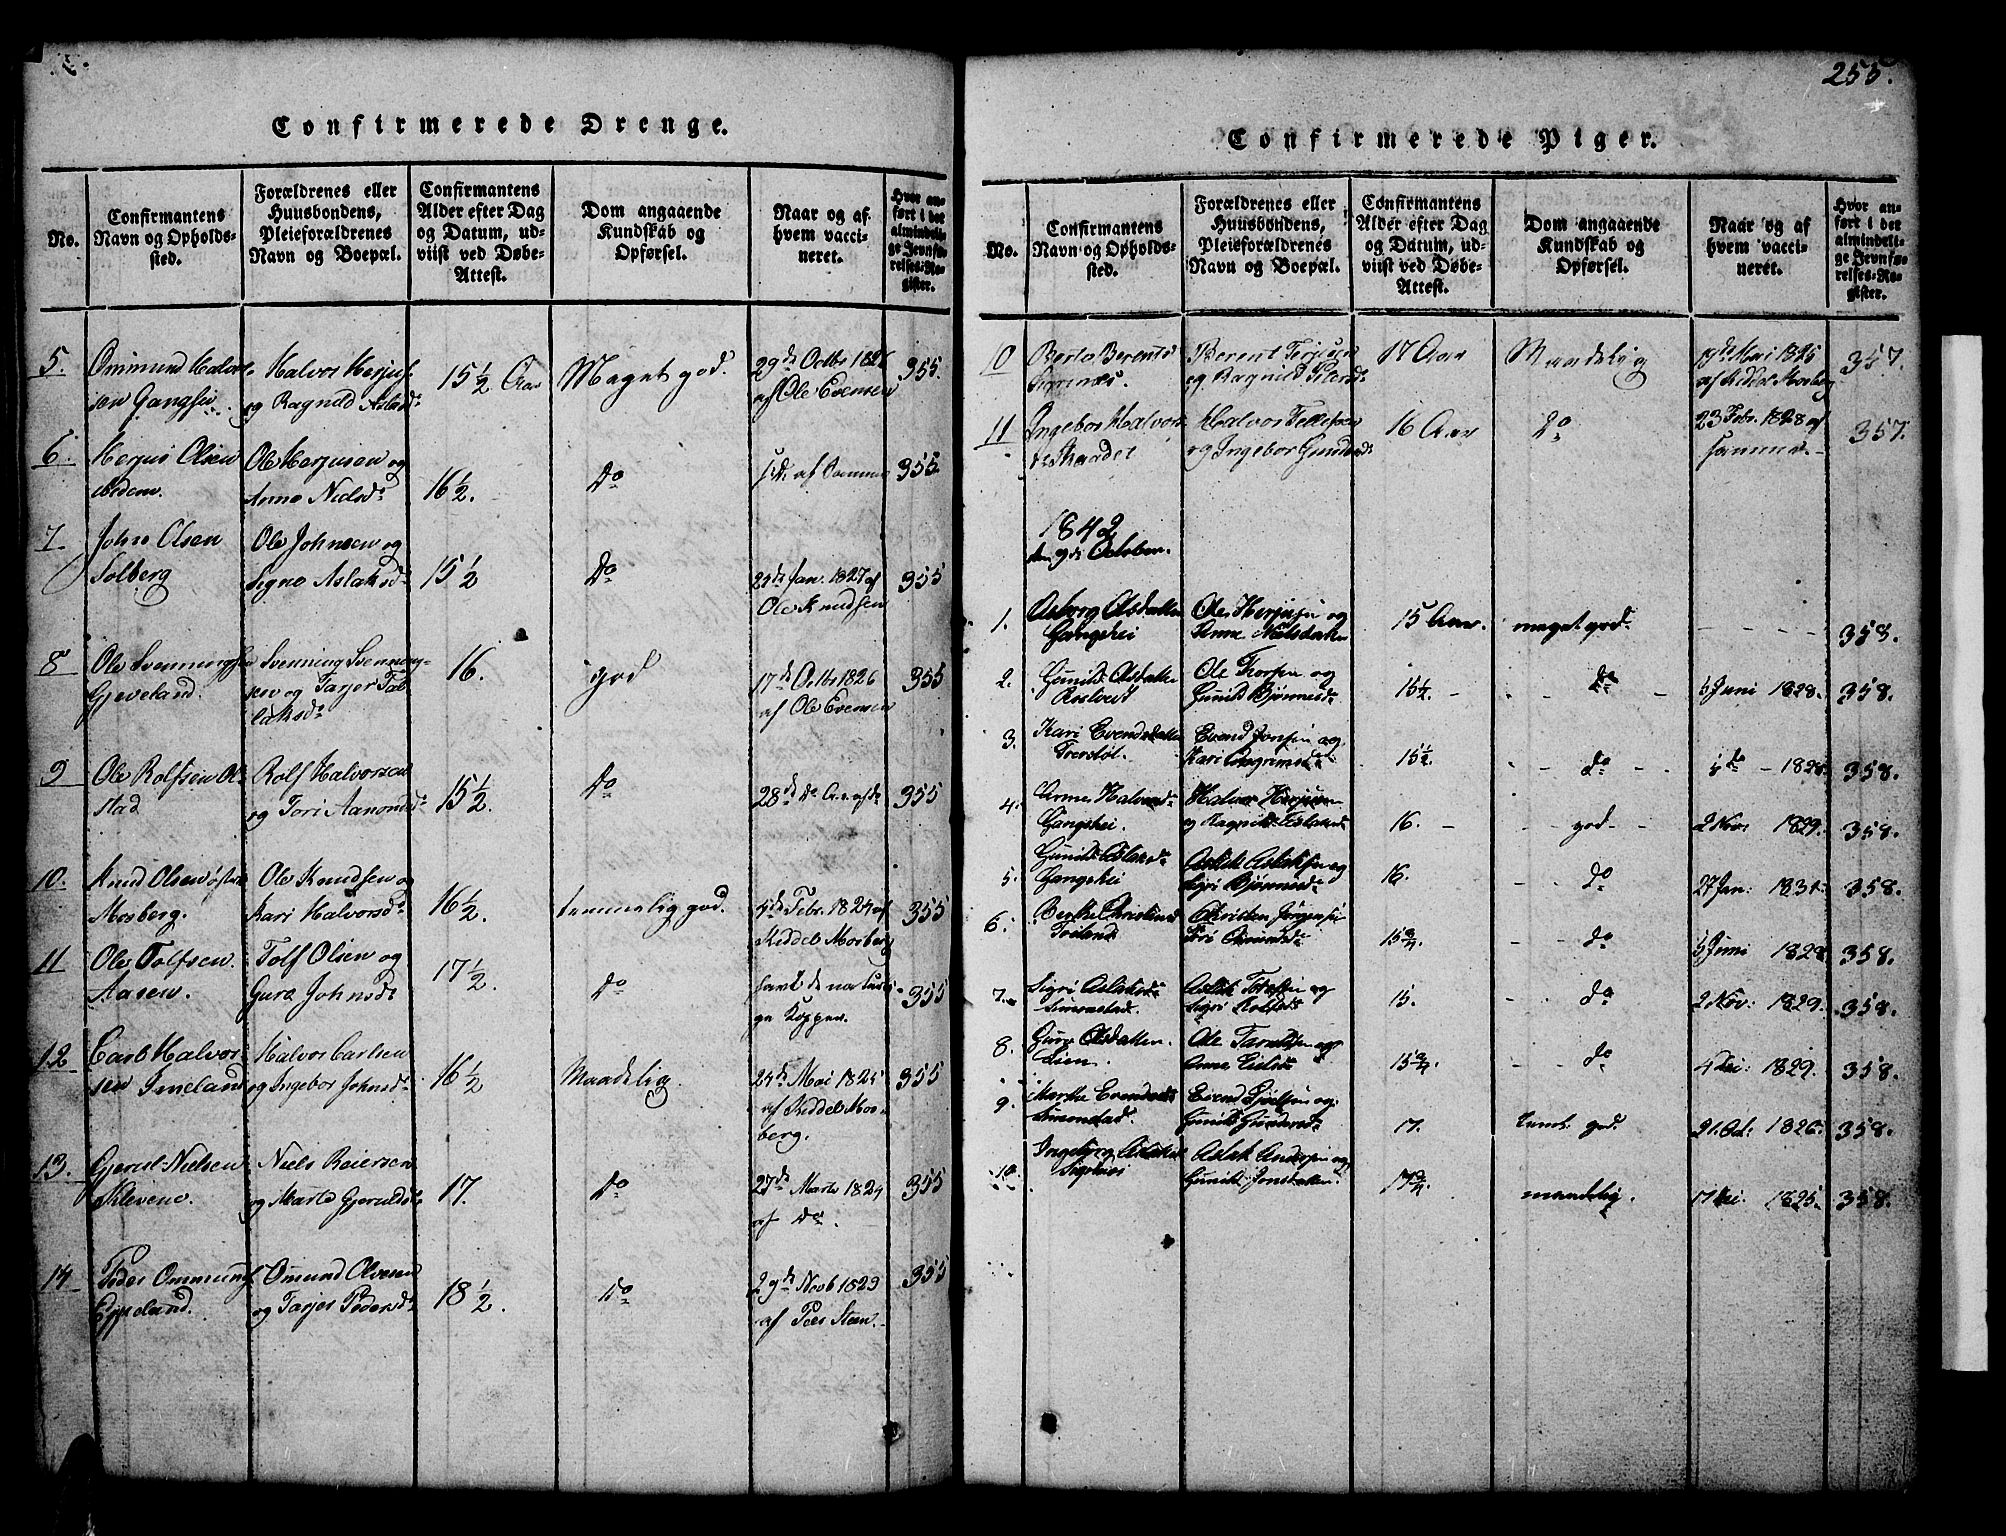 255.
Confirmerede Drenge.
No.
Confirmantens
Navn og Opholds-
sted.
Forældrenes eller
Huusbondens,
Pleieforældrenes
Navn og Boepæl.
Confirmantens
Alder efter Dag
og Datum, ud-
viist ved Døbe-
Attest.
Dom angaaende
Kundskab og
Opførsel.
Naar og af
hvem vacci-
neret.
Hvor an-
ført i det
almindeli-
ge Jevnfø-
relses-Re-
gister.
5.
Ommund Halvor-
sen
Halvor Herjus.
og Ragnild Aslaksd.
15 1/2 Aar
Meget god.
29de Octbr 1826
af Ole Evensen
355.
6.
Herjus Olsen
ibidem.
Ole Herjusen og
Anne Nielsd.
16 1/2.
do
do af Samme
355
7
John Olsen
Solberg
Ole Johnsen og
Signe Aslaksd.
15 1/2
do
24de Jan. 1827 af
Ole Knudsen
355
8
Ole Svenningsen
Gjeveland.
Svenning Svenning-
sen og Tarjer Tal-
laksd.
16.
god
17de Octbr 1826
af Ole Evensen
355
9
Ole Rolfsen Ol-
stad
Rolf Halvorsen
og Tori Aanonds.
15 1/2.
do
28de do
355
10.
Knud Olsen
Mosberg.
Ole Knudsen og
Kari Halvorsd.
16 1/2.
temmelig god.
4de Febr. 1824 af
Keddel Mosberg
355
11
Ole Tolfsen.
Aasen.
Tolf Olsen og
Guro Johnsd.
17 1/2.
do
havt de naturli-
ge Kopper.
355
12
Carl Halvor-
sen Imeland
Halvor Carlsen
og Ingebor Johnsd.
16 1/2
Maadelig.
24de Mai 1825
af Keddel Mos-
berg.
355
13.
Gjerul Nielsen
Klevene.
Niels Reiersen
og Marte Gjeruldsd.
17.
do
27de Marts 1824
af do.
355
14
Peder Ommunds.
Eppeland.
Omund Olvesen
og Tarjer Pedersd.
18 1/2.
do
29de Novb 1823
af Peer Steen.
355
Confirmerede Piger.
No.
Confirmantens
Navn og Opholds-
sted.
Forældrenes eller
Huusbondens,
Pleieforældrenes
Navn og Boepæl.
Confirmantens
Alder efter Dag
og Datum, ud-
viist ved Døbe-
Attest.
Dom angaaende
Kundskab og
Opførsel.
Naar og af
hvem vacci-
neret.
Hvor an-
ført i det
almindeli-
ge Jevnfø-
relses-Re-
gister.
10
Berte Berents.
Berent Terjesen
og Ragnild
17 Aar
Maadelig
Mai 1825
af Keddel Mosberg
357.
11
Ingebor Halvors.
Halvor Tellefsen
og Ingebor Gunders.
16 Aar
do
23 Febr. 1828 af
samme.
357.
1842
den 9de October.
1.
Aaborg Olsdatter
Gangshei
Ole Herjusen og
Anne Nielsdatter
15 Aar.
meget god.
358.
2.
Gunild Olsdatter
Ole Thorsen og
Gunild Bjørnsd.
15 1/2.
do
5 Juni 1828.
358.
3.
Kari Evendsdatter
Evend Jonsen og
Kari
15 1/2.
do
do 1828.
358.
4.
Anne Halvorsd.
Gangshei.
Halvor Herjusen
og Ragnild Aslaksd.
16.
god
2 Nov: 1829.
358.
5.
Gunild Aslaksd.
Gangshei
Aslak Aslaksen og
Sigri Bjørnsd.
16.
do
27 Jan: 1831.
358.
6.
Berthe
Christen Jørgensen
15 3/4.
do
5 Juni 1828.
358.
7.
Sigri Aslaksd.
Simonstad.
Aslak
Sigri
15.
do
2 Nov: 1829.
358.
8.
Guro Olsdatter
Lien.
Ole
Anne
15 3/4.
do
1829.
358.
9.
Marthe Evendsd.
Simonstad.
Evend
Gunild Gundersd.
17.
tem. god.
21 Oct: 1826.
358.
10.
Ingeborg Aslaksd.
Aslak Andersen og
Gunild Jonsdatter.
17 3/4.
maadelig.
17 1825.
358.